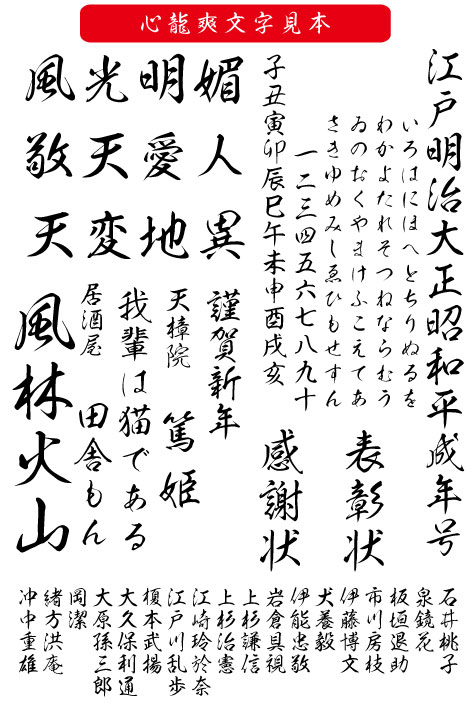 心龍爽文字見本
江戸明治大正昭和平成年号
いろはにほへとちりぬるを
わかよたれそつねならむう
ゐのおくやまけふこえてあ
さきゆめみしゑひもせすん
一二三四五六七八九十
子丑寅卯辰巳午未申酉戌亥
表彰状
感謝状
媚人異
明愛地
光天変
風敬天
謹賀新年
天樟院 篤姫
我輩は猫である
居酒屋 田舎もん
風林火山
石井桃子
泉鏡花
板垣退助
市川房枝
伊藤博文
犬養毅
伊能忠敬
岩倉具視
上杉謙信
上杉治憲
江崎玲於奈
江戸川乱歩
榎本武揚
大久保利通
大原孫三郎
岡潔
緒方洪庵
冲中重雄